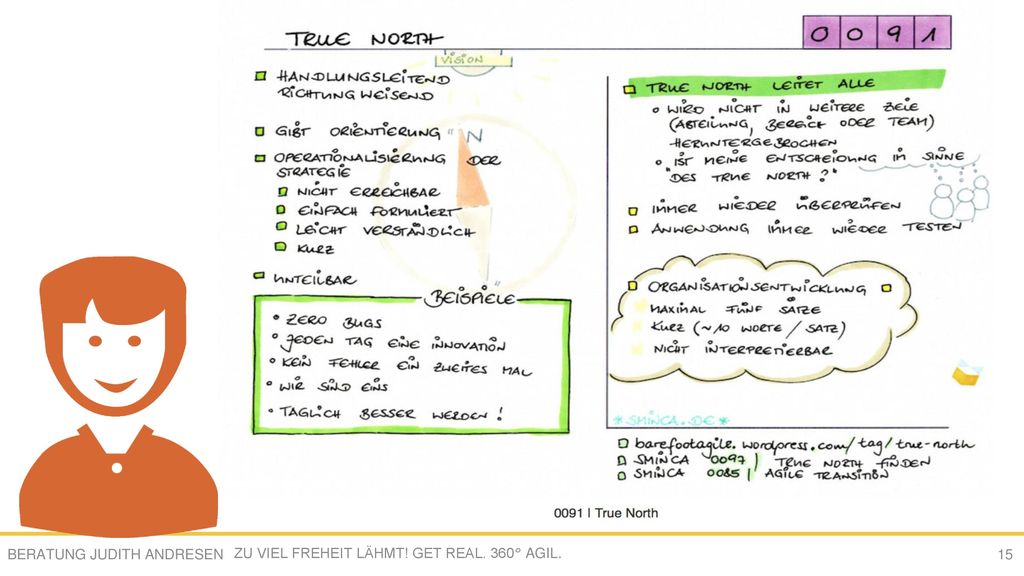 TRUE NORTH
0091
VISION
HANDLUNGSLEITEND
RICHTUNG WEISEND
GIBT ORIENTIERUNG
"N"
OPERATIONALISIERUNG DER
STRATEGIE
NICHT ERREICHBAR
EINFACH FORMULIERT
LEICHT VERSTÄNDLICH
KURZ
UNTEILBAR
BEISPIELE
• ZERO BUGS
• JEDEN TAG EINE INNOVATION
• KEIN FEHLER EIN ZWEITES MAL
• WIR SIND EINS
• TÄGLICH BESSER WERDEN!
TRUE NORTH LEITET ALLE
WIRD NICHT IN WEITERE ZIELE
(ABTEILUNG, BEREICH ODER TEAM)
HERUNTERGEBROCHEN
IST MEINE ENTSCHEIDUNG IM SINNE
"DES TRUE NORTH?"
IMMER WIEDER ÜBERPRÜFEN
ANWENDUNG IMMER WIEDER TESTEN
ORGANISATIONSENTWICKLUNG
MAXIMAL FÜNF SÄTZE
KURZ (~10 WORTE / SATZ)
NICHT INTERPRETIERBAR
*SMINCA.DE*
barefootagile.wordpress.com/tag/true-north
SMINCA 0097 | TRUE NORTH FINDEN
SMINCA 0085 | AGILE TRANSITION
0091 | True North
BERATUNG JUDITH ANDRESEN ZU VIEL FREHEIT LÄHMT! GET REAL. 360° AGIL.
15